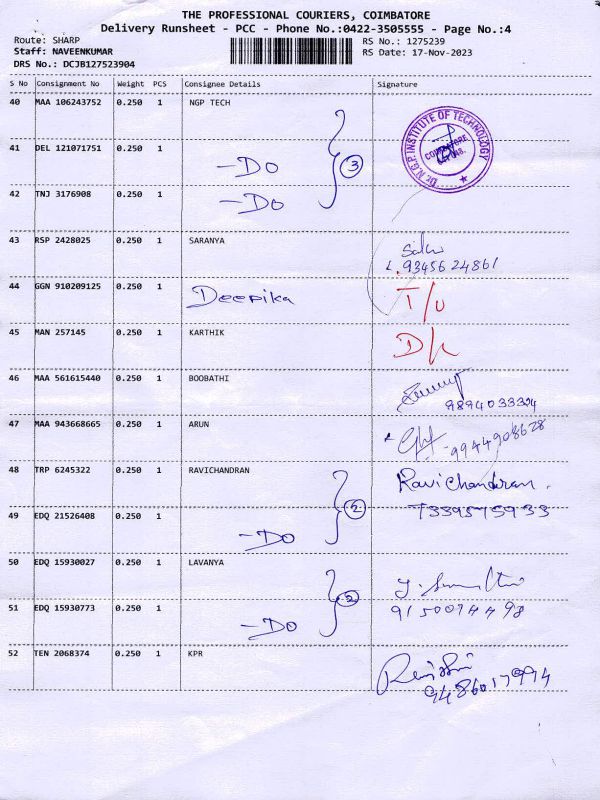 THE PROFESSIONAL COURIERS, COIMBATORE
Delivery Runsheet - PCC - Phone No.:0422-3505555 - Page No.:4
Route: SHARP
RS No.: 1275239
Staff: NAVEENKUMAR
RS Date: 17-Nov-2023
DRS No.: DCJB127523904
S No Consignment No Weight PCS Consignee Details Signature
40 MAA 106243752 0.250 1 NGP TECH
Dr. N.G.P. INSTITUTE OF TECHNOLOGY
COIMBATORE
41 DEL 121071751 0.250 1 -DO 3
42 TNJ 3176908 0.250 1 -DO
43 RSP 2428025 0.250 1 SARANYA
9345624861
44 GGN 910209125 0.250 1 Deepika T/U
45 MAN 257145 0.250 1 KARTHIK D/L
46 MAA 561615440 0.250 1 BOOBATHI
9894033324
47 MAA 943668665 0.250 1 ARUN
9944908628
48 TRP 6245322 0.250 1 RAVICHANDRAN Ravichandran.
7339575933
49 EDQ 21526408 0.250 1 -DO 2
50 EDQ 15930027 0.250 1 LAVANYA
51 EDQ 15930773 0.250 1 -DO 2
9150074498
52 TEN 2068374 0.250 1 KPR
9486017994